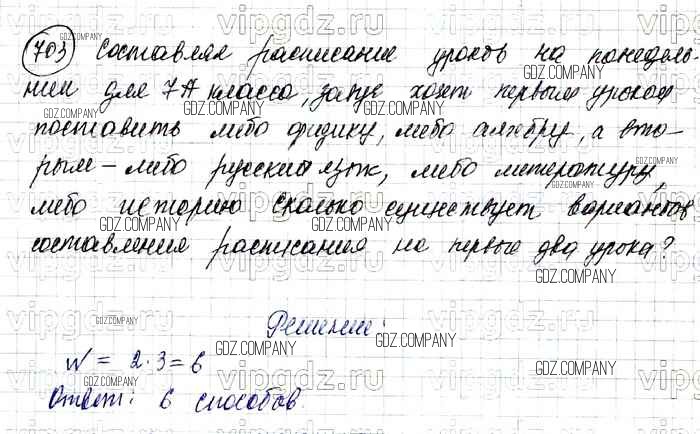 703 Составляя расписание уроков на понедель-
ник для 7А класса, завуч хочет первым уроком
поставить либо физику, либо алгебру, а вто-
рым – либо русский язык, либо литературу,
либо историю Сколько существует вариантов
составления расписания на первые два урока?
Решение:
N = 2·3=6
Ответ: 6 способов.
vipgdz.ru
GDZ.COMPANY